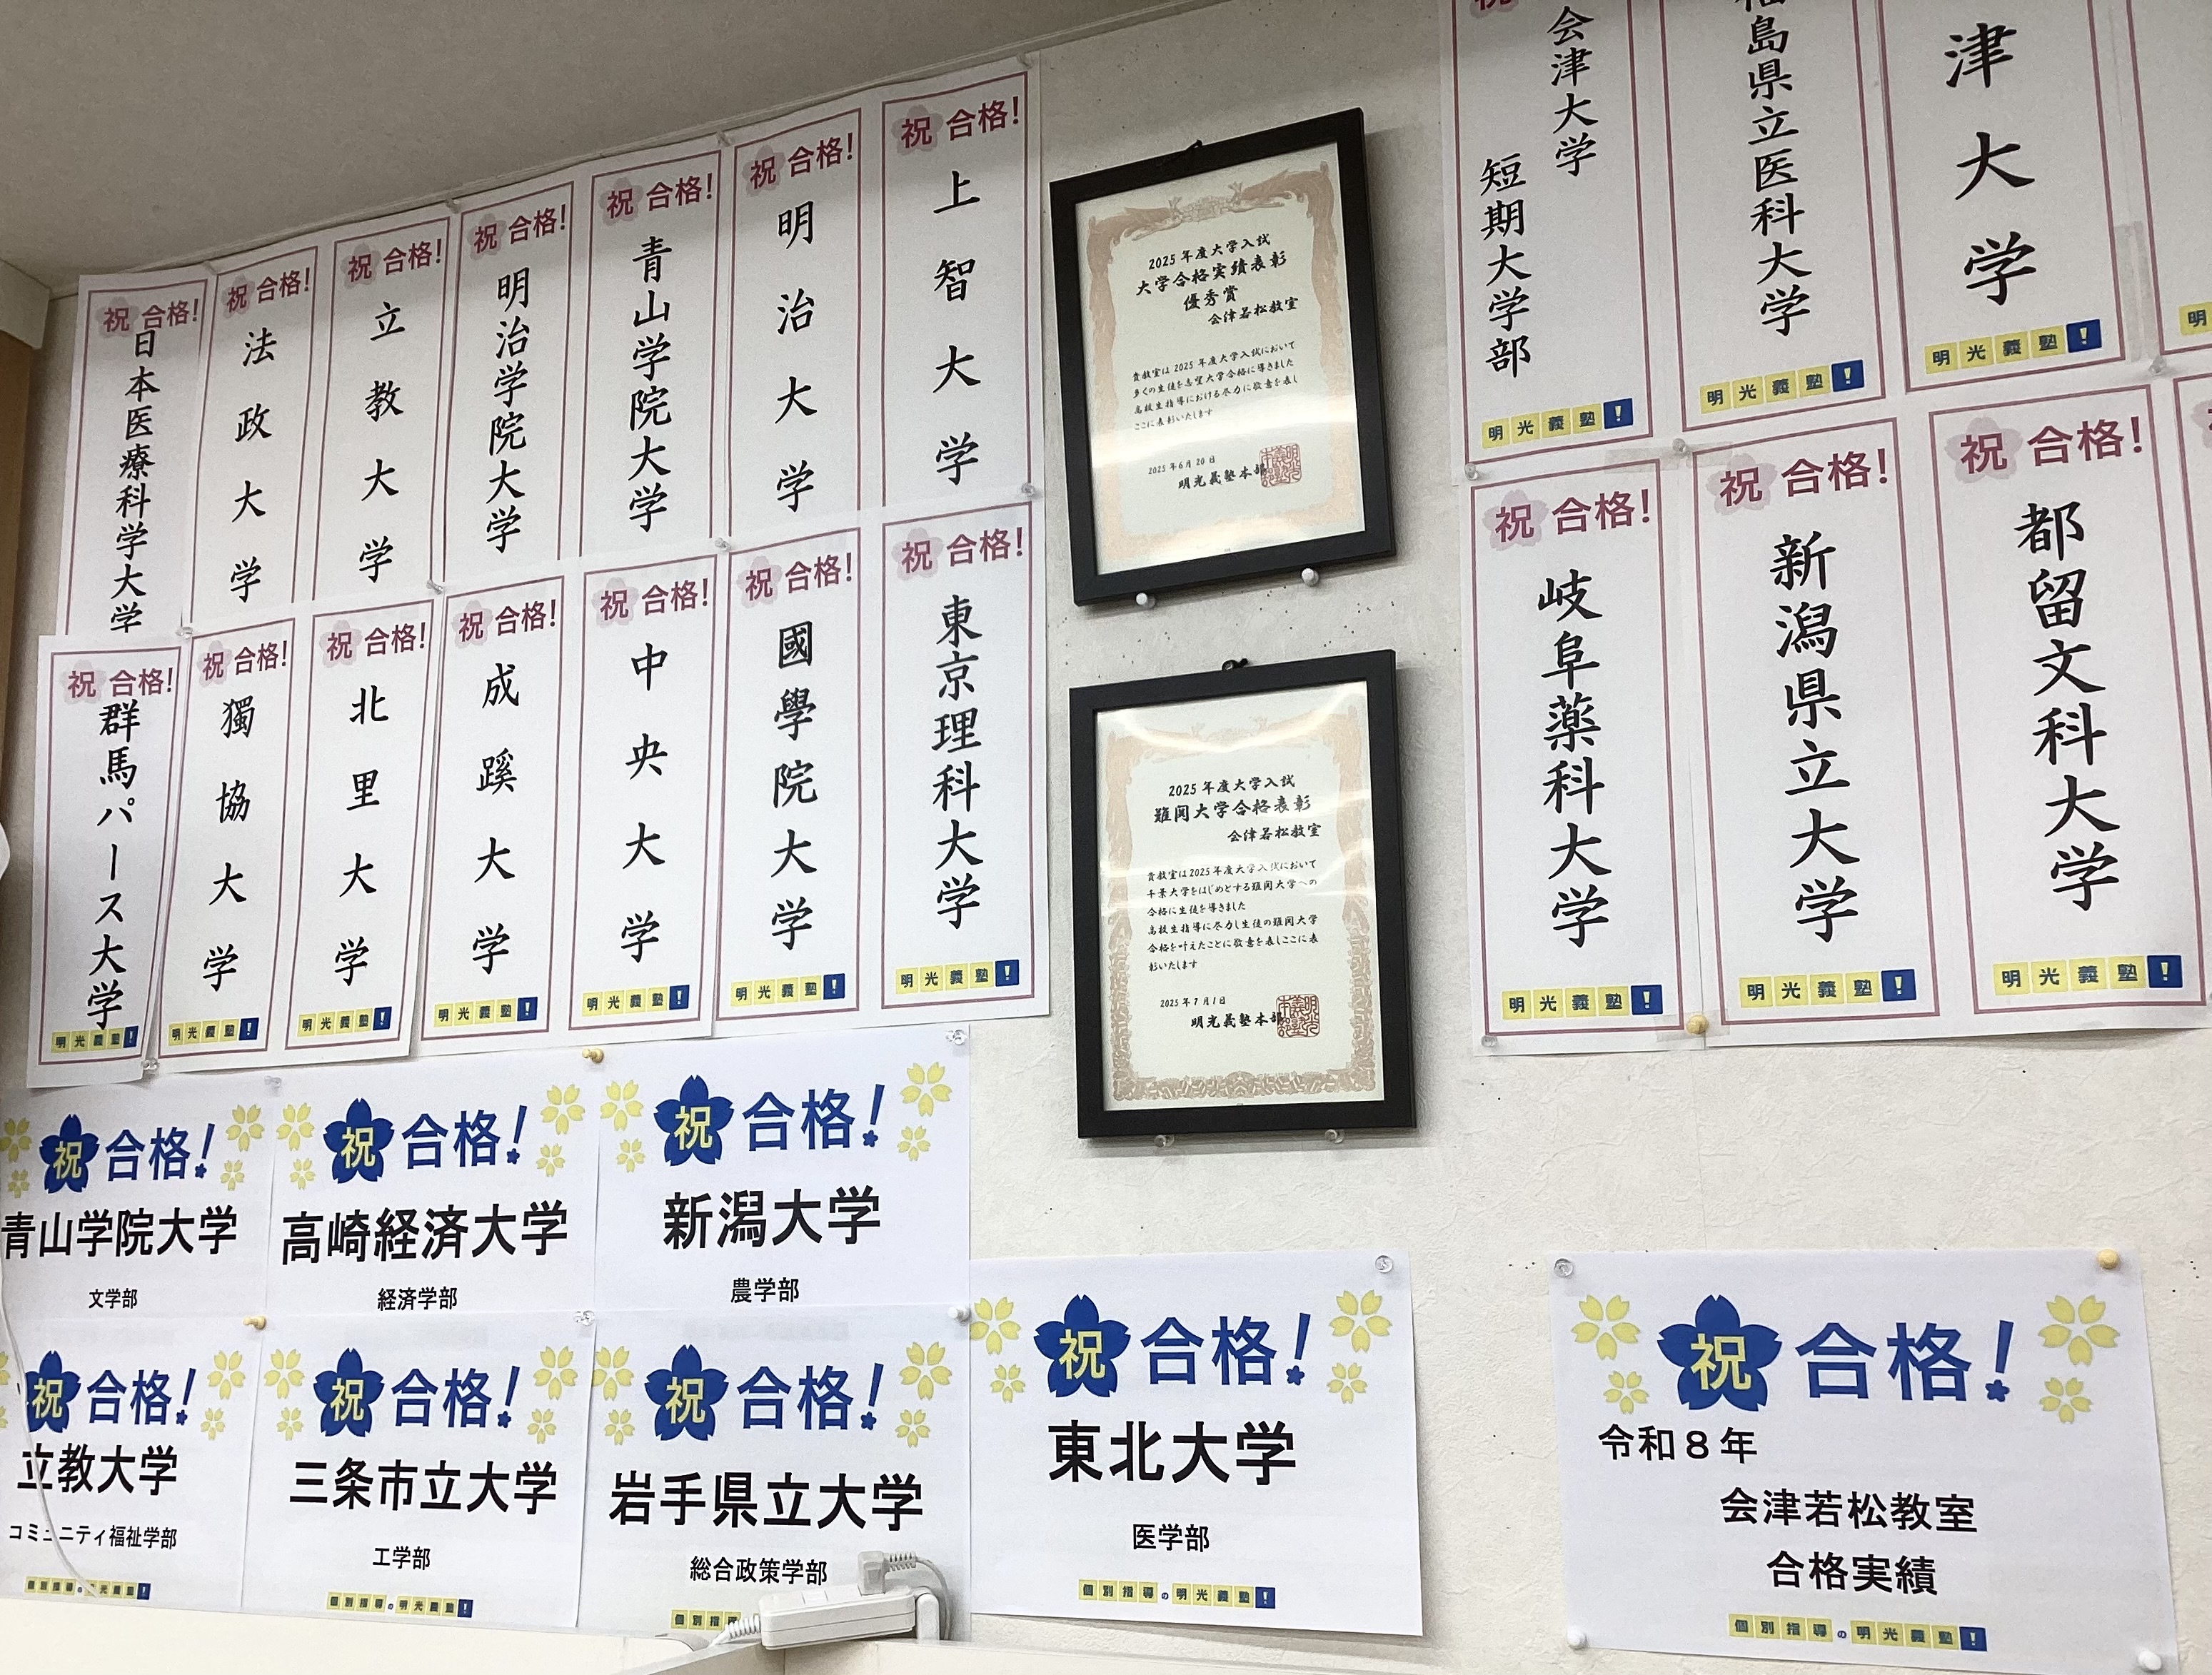 祝 合格!
日本医療科学大学
祝 合格!
法政大学
祝 合格!
立教大学
祝 合格!
明治学院大学
祝 合格!
青山学院大学
祝 合格!
明治大学
祝 合格!
上智大学
祝 合格!
群馬パース大学
明光義塾!
祝 合格!
獨協大学
明光義塾!
祝 合格!
北里大学
明光義塾!
祝 合格!
成蹊大学
明光義塾!
祝 合格!
中央大学
明光義塾!
祝 合格!
國學院大学
明光義塾!
祝 合格!
東京理科大学
明光義塾!
2025年度大学入試
大学合格実績表彰
優秀賞
会津若松教室
貴教室は2025年度大学入試において
多くの生徒を志望大学合格に導きました
高校生指導における尽力に敬意を表し
ここに表彰いたします
2025年6月20日
明光義塾本部
2025年度大学入試
難関大学合格表彰
会津若松教室
貴教室は2025年度大学入試において
千葉大学をはじめとする難関大学への
合格に生徒を導きました
高校生指導に尽力し生徒の難関大学
合格を叶えたことに敬意を表しここに表
彰いたします
2025年7月1日
明光義塾本部
会津大学
短期大学部
明光義塾!
福島県立医科大学
明光義塾!
津大学
明光義塾!
明
祝 合格!
岐阜薬科大学
明光義塾!
祝 合格!
新潟県立大学
明光義塾!
祝 合格!
都留文科大学
明光義塾!
祝 合格!
青山学院大学
文学部
祝 合格!
高崎経済大学
経済学部
祝 合格!
新潟大学
農学部
祝 合格!
立教大学
コミュニティ福祉学部
個別指導の明光義塾!
祝 合格!
三条市立大学
工学部
個別指導の明光義塾!
祝 合格!
岩手県立大学
総合政策学部
個別指
祝 合格!
東北大学
医学部
個別指導の明光義塾!
祝 合格!
令和8年
会津若松教室
合格実績
個別指導の明光義塾!